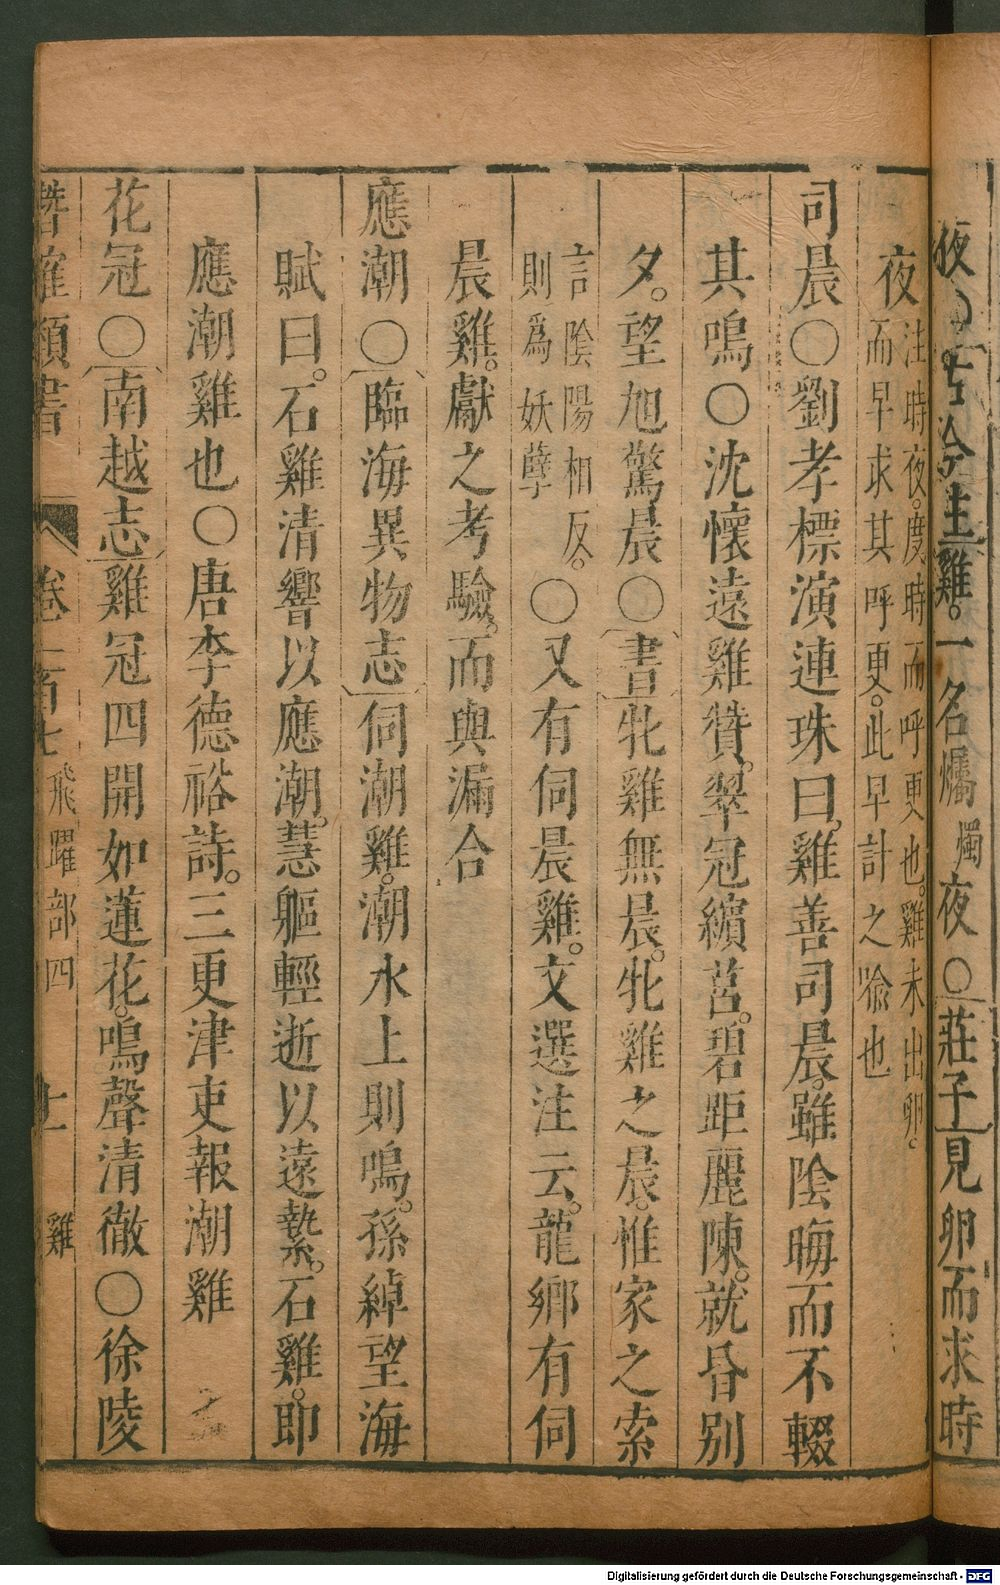 夜○古今注雞一名燭燭夜○莊子見卵而求時
夜注時夜度時而呼更也雞未出卵
而早求其呼更此早計之喻也
司晨○劉孝標演連珠曰雞善司晨雖陰晦而不輟
其鳴○沈懷遠雞贊翠冠繽莒碧距麗陳就昏別
夕望旭驚晨○書牝雞無晨牝雞之晨惟家之索
言陰陽相反
則為妖孽○又有伺晨雞文選注云龍鄉有伺
晨雞獻之考驗而與漏合
應潮○臨海異物志伺潮雞潮水上則鳴孫綽望海
賦曰石雞清響以應潮慧軀輕逝以遠縶石雞即
應潮雞也○唐李德裕詩三更津吏報潮雞
花冠○南越志雞冠四開如蓮花鳴聲清徹○徐陵
類書 卷 百七 飛躍部四 十一 雞
Digitalisierung gefördert durch die Deutsche Forschungsgemeinschaft - DFG